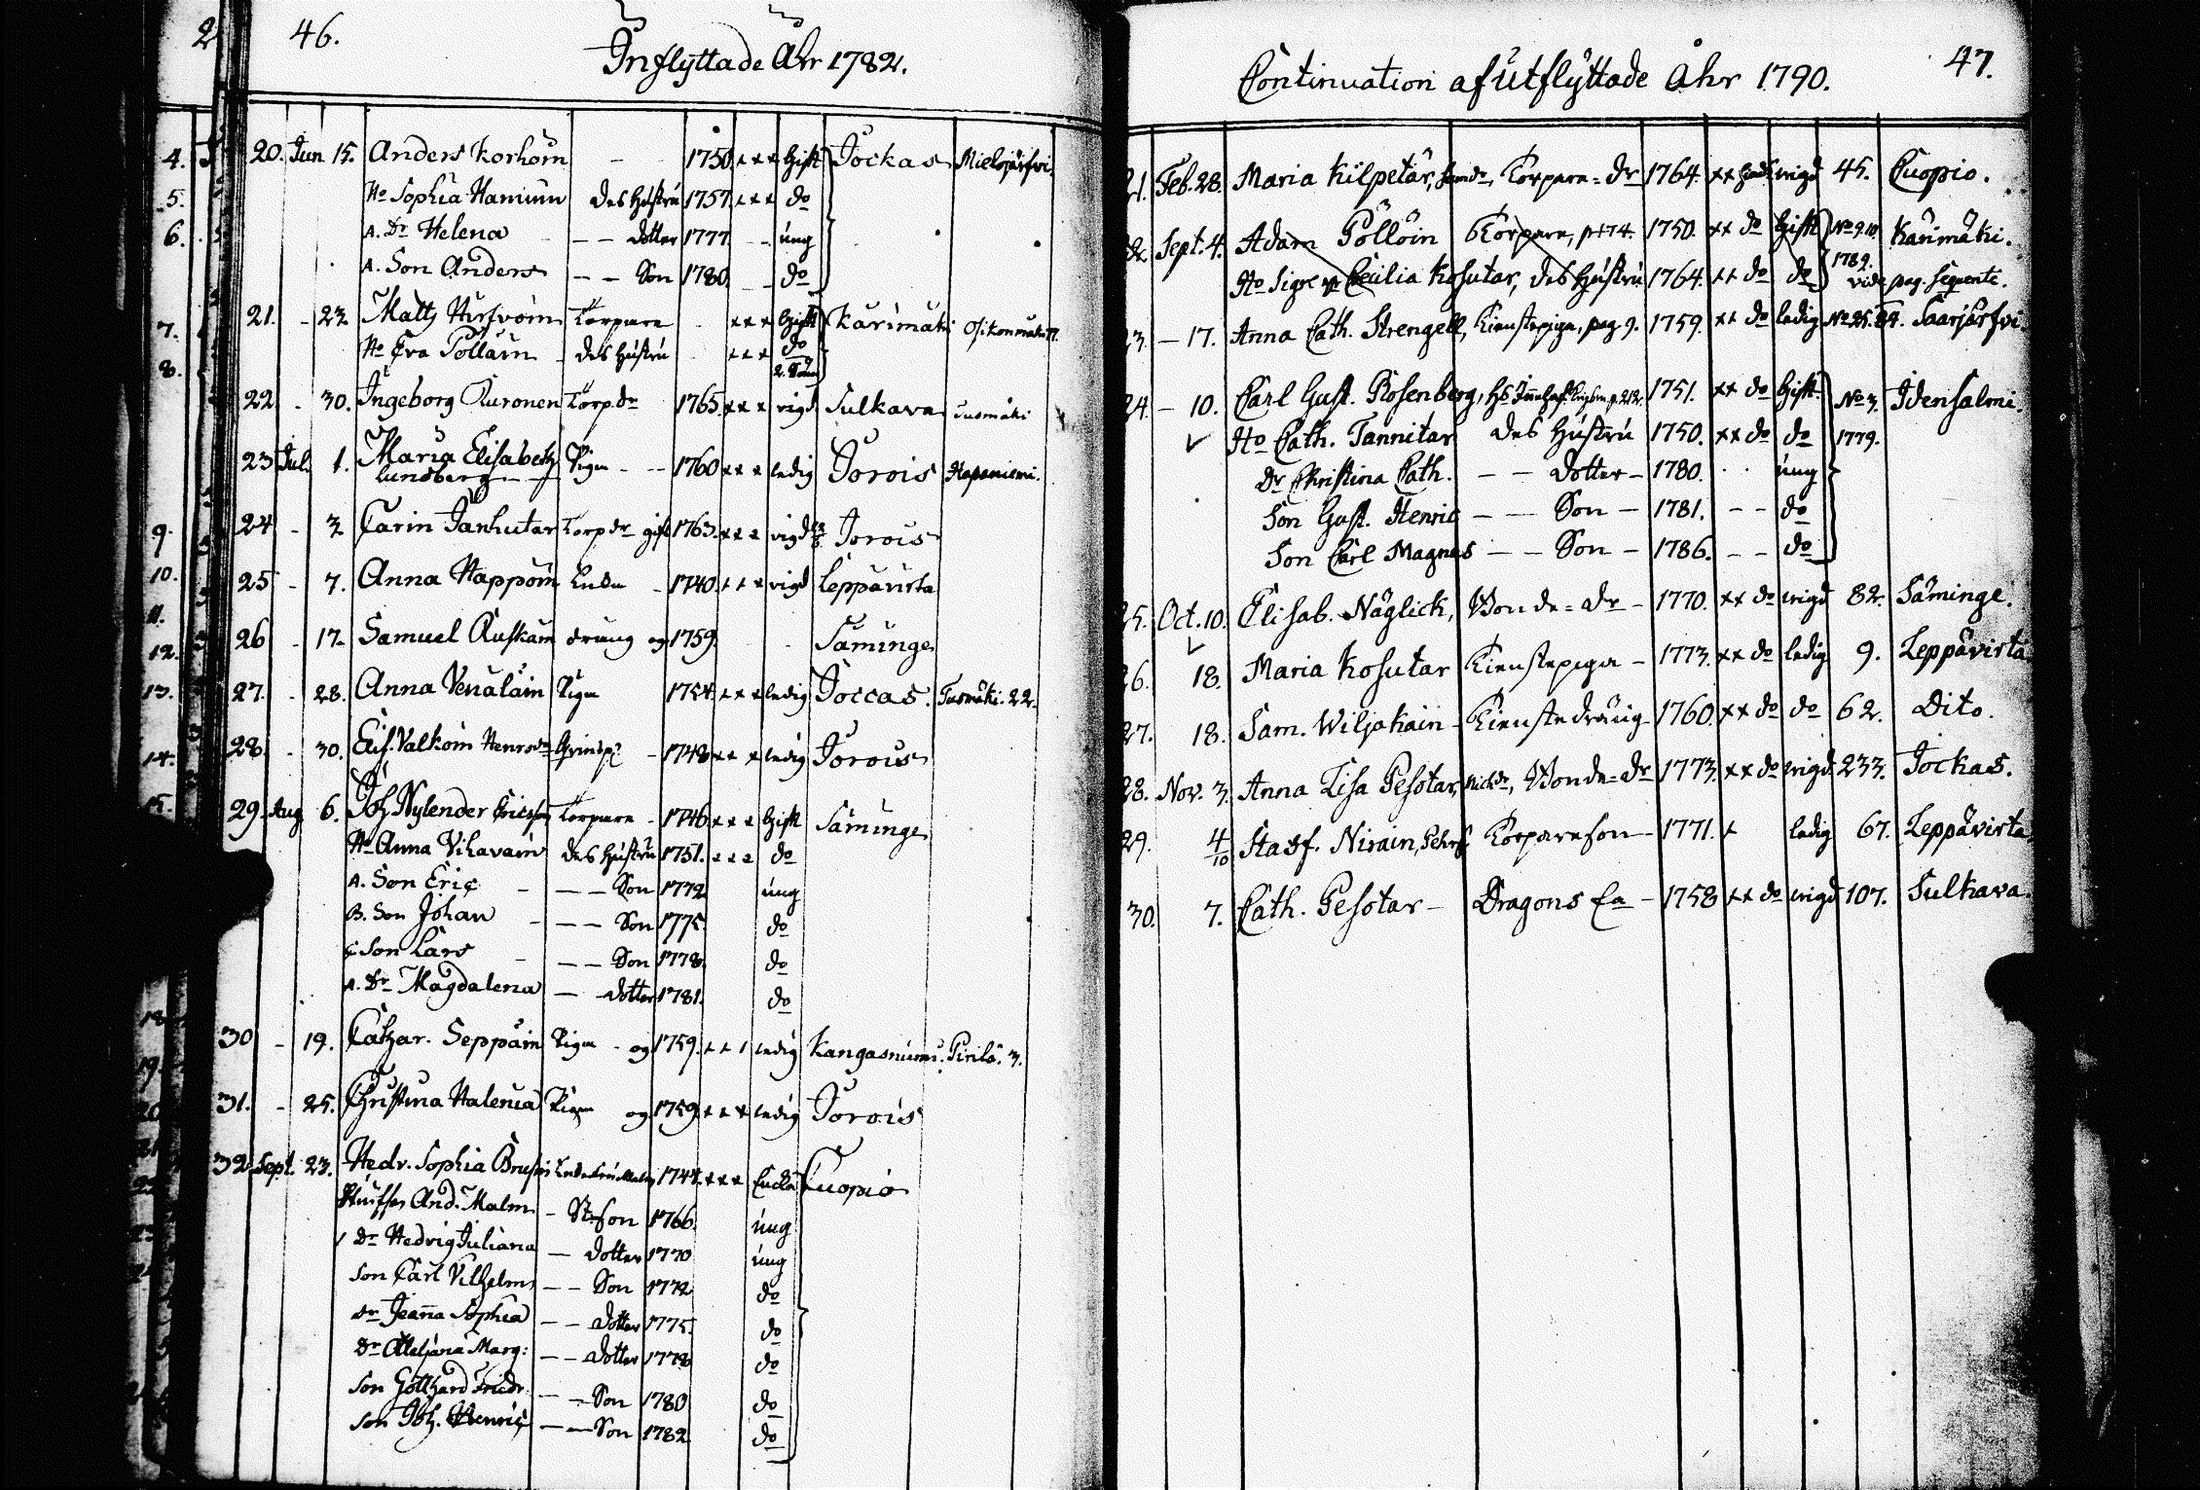 46.
Inflyttade Åhr 1782.
20. Jun 15. Anders Korhoin - - 1750. x x x Gift Jockas
Ho Sophia Haniuin des Hustru 1757. x x x do
A. Dr Helena - - dotter 1777. - - ung
A. Son Anders - - Son 1780. - - do
21. - 22 Matts Torpare x x x Gift Kärimäki
Ho Eva Pölläin des Hustru x x x do
22 - 30. Ingeborg Auronen Torp. dr 1765. x x x vigd Sulkava
23 Jul. 1. Maria Elisabeth Piga - - 1760 x x x ledig Jorois
Lundberg
24 - 3 Carin Janhutar Torp dr gift 1763. x x x vigd Jorois
25 - 7. Anna Happoin Enka - 1740. x x x vigd Leppävirta
26 - 17. Samuel Auskain dräng og 1759. Säminge
27. - 28. Anna Venäläin Piga 1754 x x x ledig Joccas. 22.
28. - 30. Valkoin 1748 x x x ledig Jorois
29. Aug 6. Joh Nylender Ericsson Torpare - 1746 x x x Gift Säminge
Ho Anna Vihavain des Hustru 1751. x x x do
A. Son Eric - - - Son 1772 ung
B. Son Johan - - - Son 1775. do
C Son Lars - - - Son 1778. do
A. Dr Magdalena - dotter 1781. do
30 - 19. Cathar. Seppäin Piga - og 1759. x x x ledig Kangasniemi. Pirilä. 3.
31. - 25. Christina Halenia Piga og 1759 x x x ledig Jorois
32 Sept. 23. Hedr. Sophia 1744. x x x Encka Cuopio
And. Malm - Son 1766. ung
Dr Hedvig Juliana - dotter 1770 ung
Son Carl Vilhelm - - Son 1772 do
Dr Jeanna Sophia - - dotter 1775. do
Dr Marg: - - dotter 1778 do
Son Gotthard Fridr. - - Son 1780 do
Son Joh. Henric - - Son 1782 do
47.
Continuation af Utflyttade Åhr 1790.
21. Feb. 28. Maria Kilpetär, Torpare = dr 1764. x x vigd 45. Cuopio.
22. Sept. 4. Adam Pöllöin Torpare, p 174. 1750. x x do Gift No 9.10 Kärimäki.
Ho Sigr Cecilia Kosutar, des Hustru 1764. x x do do 1789. vide pag. Sequente.
23. - 17. Anna Cath. Strengell, Tienstepiga, pag 9. 1759. x x do ledig No 25. Saarjärfvi
24 - 10. Carl Gust. Rosenberg, 1751. x x do Gift No 3. Idensalmi.
Ho Cath. Tannitar des Hustru 1750. x x do do 1779.
Dr Christina Cath. - - dotter - 1780. - - ung
Son Gust. Henric - - Son - 1781. - - do
Son Carl Magnus - - Son - 1786. - - do
25. Oct. 10. Elisab. Näglick, Bonde = dr - 1770. x x do vigd 82. Säminge.
26. 18. Maria Kosutar Tienstepiga - 1773. x x do ledig 9. Leppävirta
27. 18. Sam. Wiljakain - Tienstedräng - 1760. x x do do 62. Dito.
28. Nov. 3. Anna Lisa Pesotar, Bonde = dr 1773. x x do vigd 233. Jockas.
29. 4/10 Staff. Nirain, Torpareson - 1771. x ledig 67. Leppävirta
30. 7. Cath. Pesotar - Dragons Ea - 1758 x x do vigd 107. Sulkava.